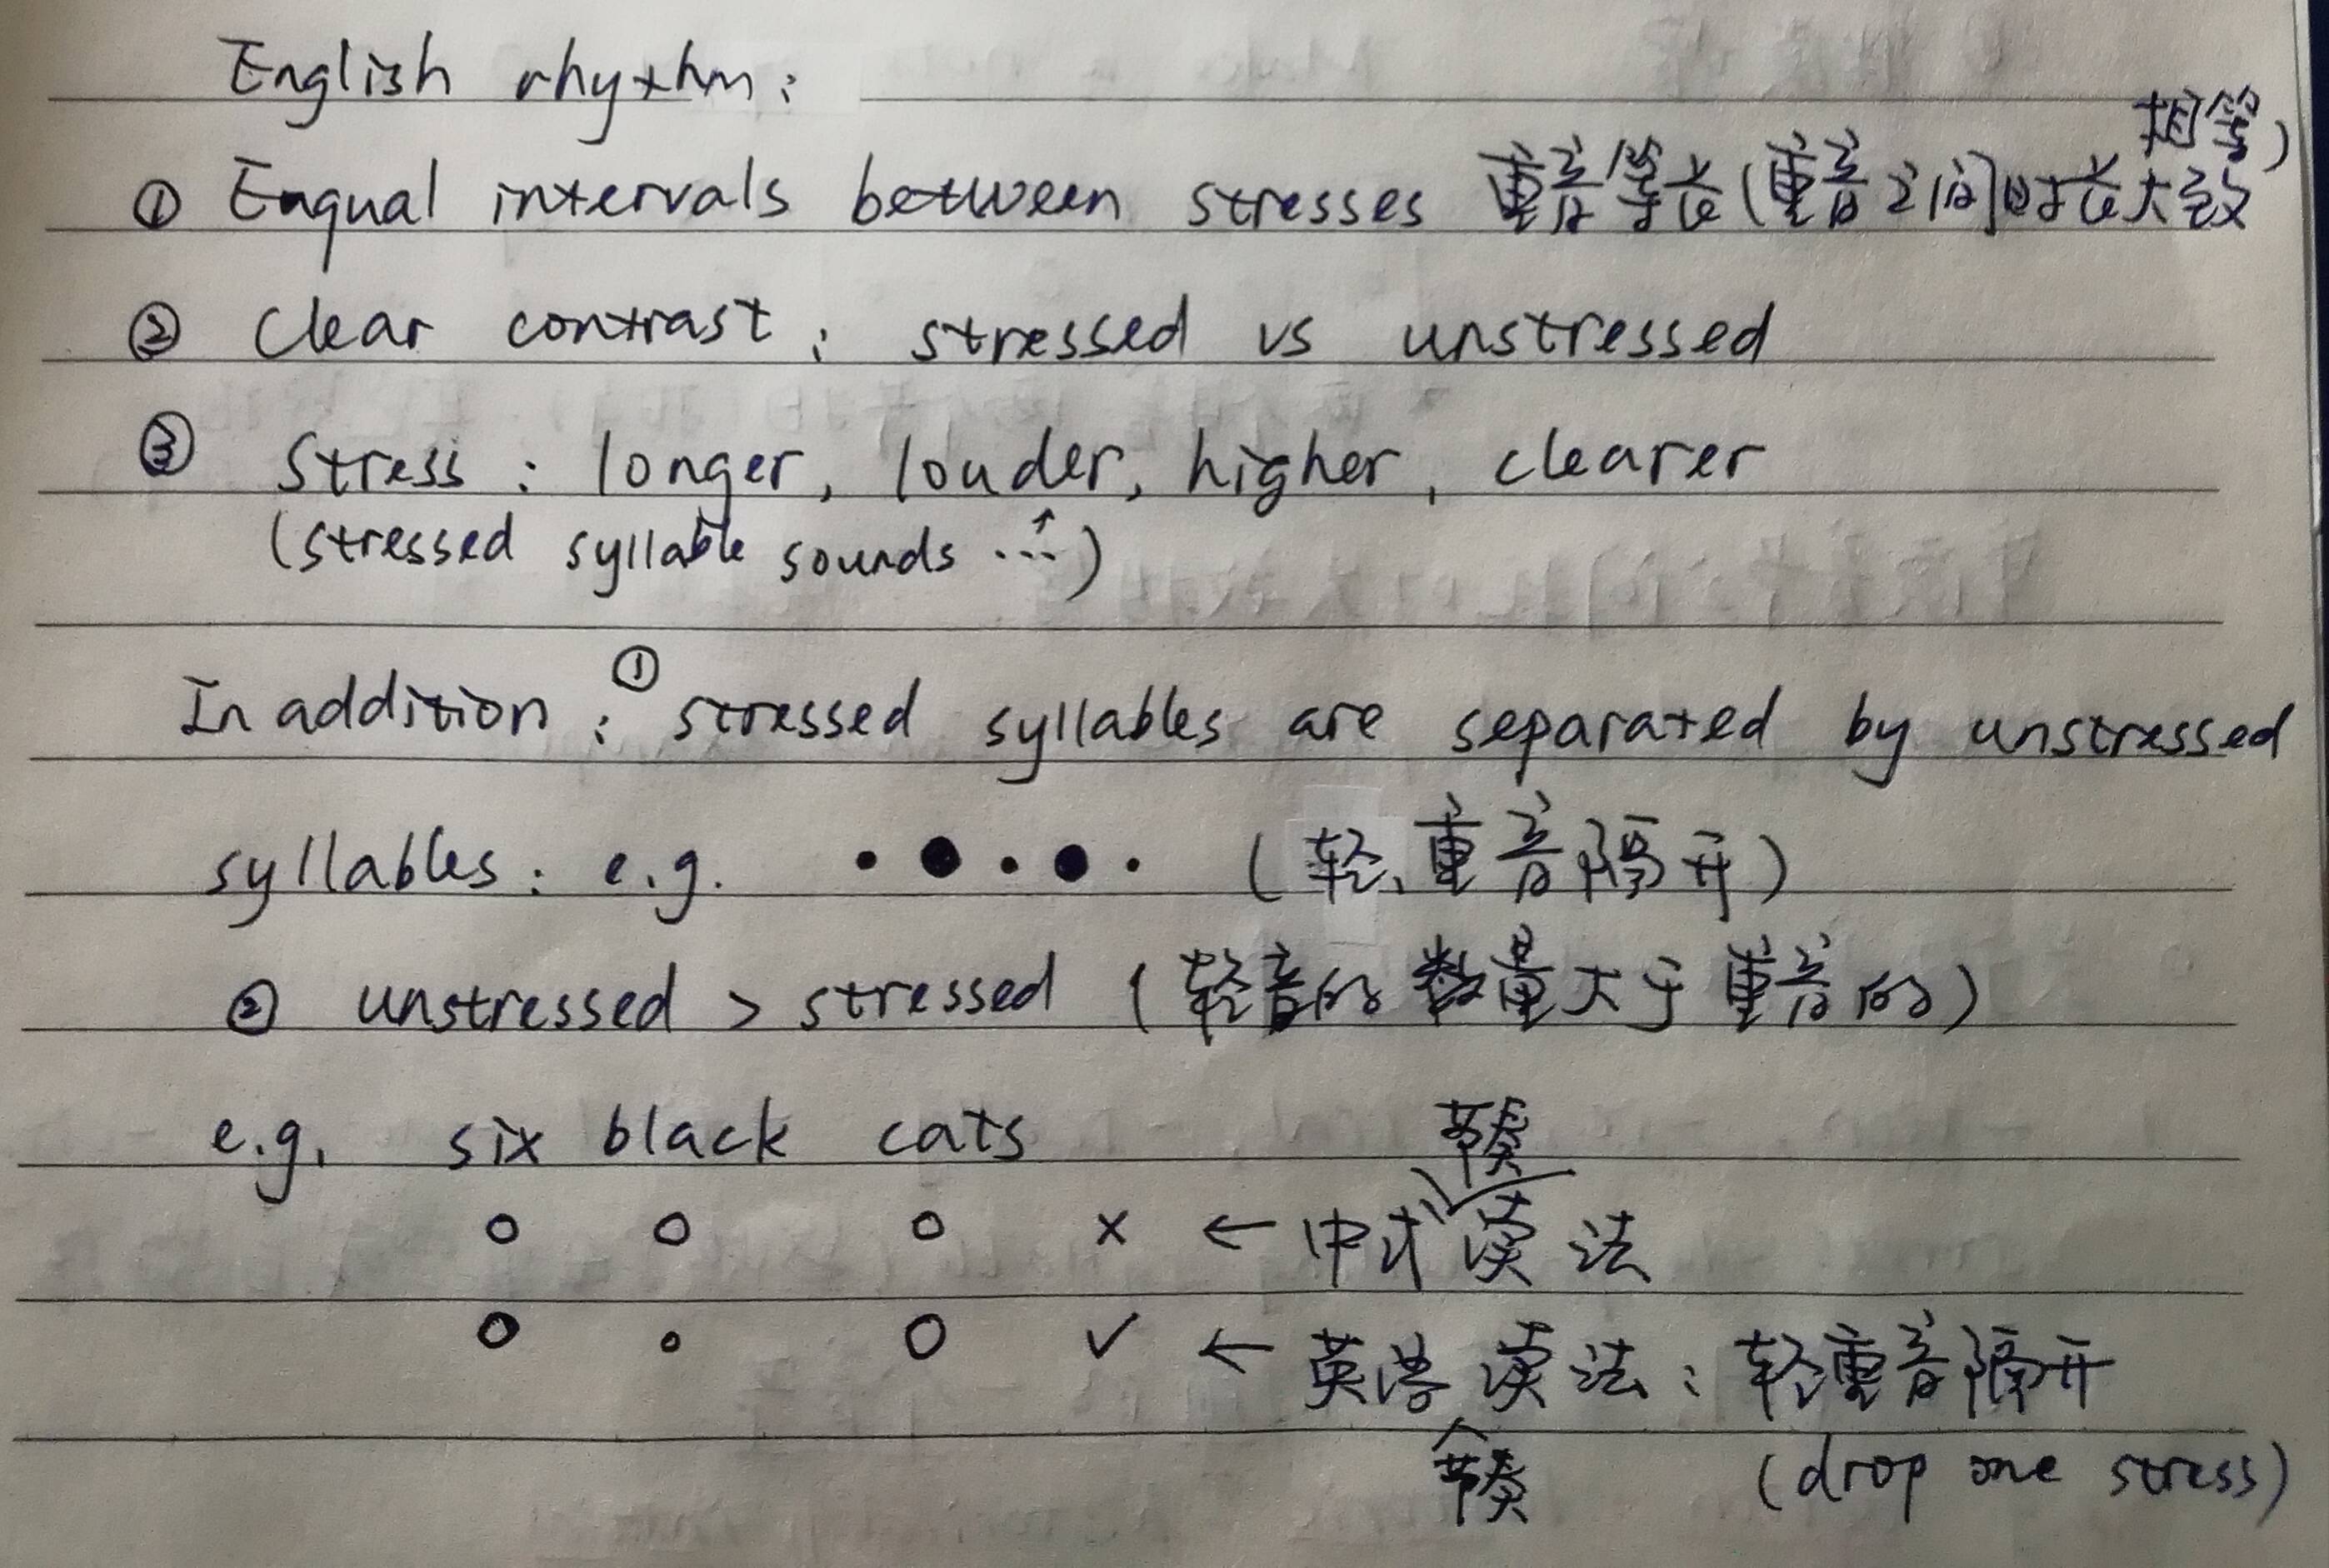 English rhythm:
① Enqual intervals between stresses 重音等长(重音之间时长大致相等)
② Clear contrast: stressed vs unstressed
③ Stress: longer, louder, higher, clearer
(stressed syllable sounds ...↑)
In addition: ① stressed syllables are separated by unstressed
syllables: e.g. • ● • ● • (轻、重音隔开)
② unstressed > stressed (轻音的数量大于重音的)
e.g. six black cats
○ ○ ○ × ← 中式节奏读法
○ ∘ ○ ✓ ← 英语节奏读法: 轻重音隔开
(drop one stress)